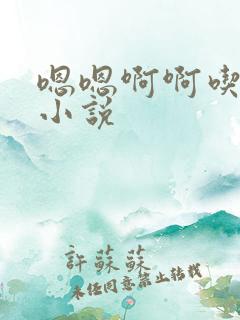 嗯嗯啊啊喫
小說
許蘇蘇
未經同意禁止轉載